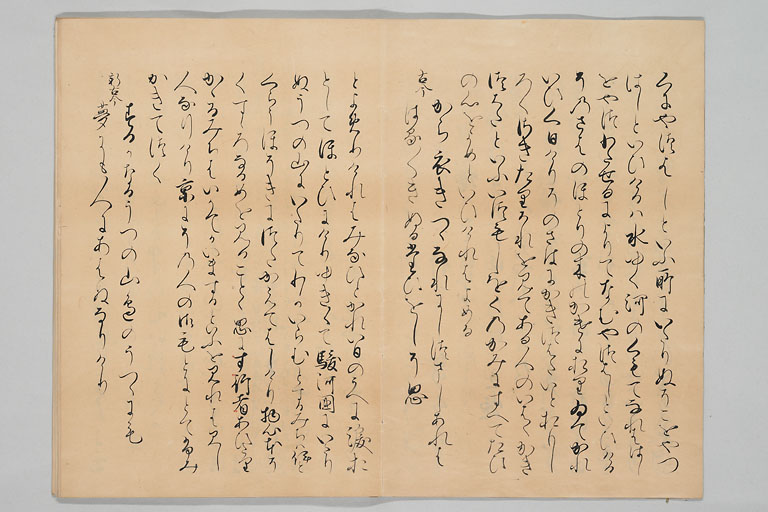 くにやつはしといふ所にいたりぬそこをやつ
はしといひけるは水ゆく河のくもてなれははし
をやつわたせるによりてなむやつはしといひける
そのさはのほとりの木のかけにおりゐてかれ
いひくひけりそのさはにかきつはたいとおもし
ろくさきたりそれを見てある人のいはくかき
つはたといふいつもしをくのかみにすへてたひ
の心をよめといひけれはよめる
古今 から衣きつゝなれにしつましあれは
はる〱きぬるたひをしそ思
とよめりけれはみなひとかれいひのうへに涙お
としてほとひにけりゆき〱て駿河国にいたり
ぬうつの山にいたりてわかいらむとするみちはいと
くらうほそきにつたかえてはしけり物心ほそ
くすゝろなるめを見ることゝ思にす行者あひたり
かゝるみちはいかてかいまするといふを見れは見し
人なりけり京にその人の御もとにとてふみ
かきてつく
新古今 するかなるうつの山邊のうつゝにも
夢にも人にあはぬなりけり